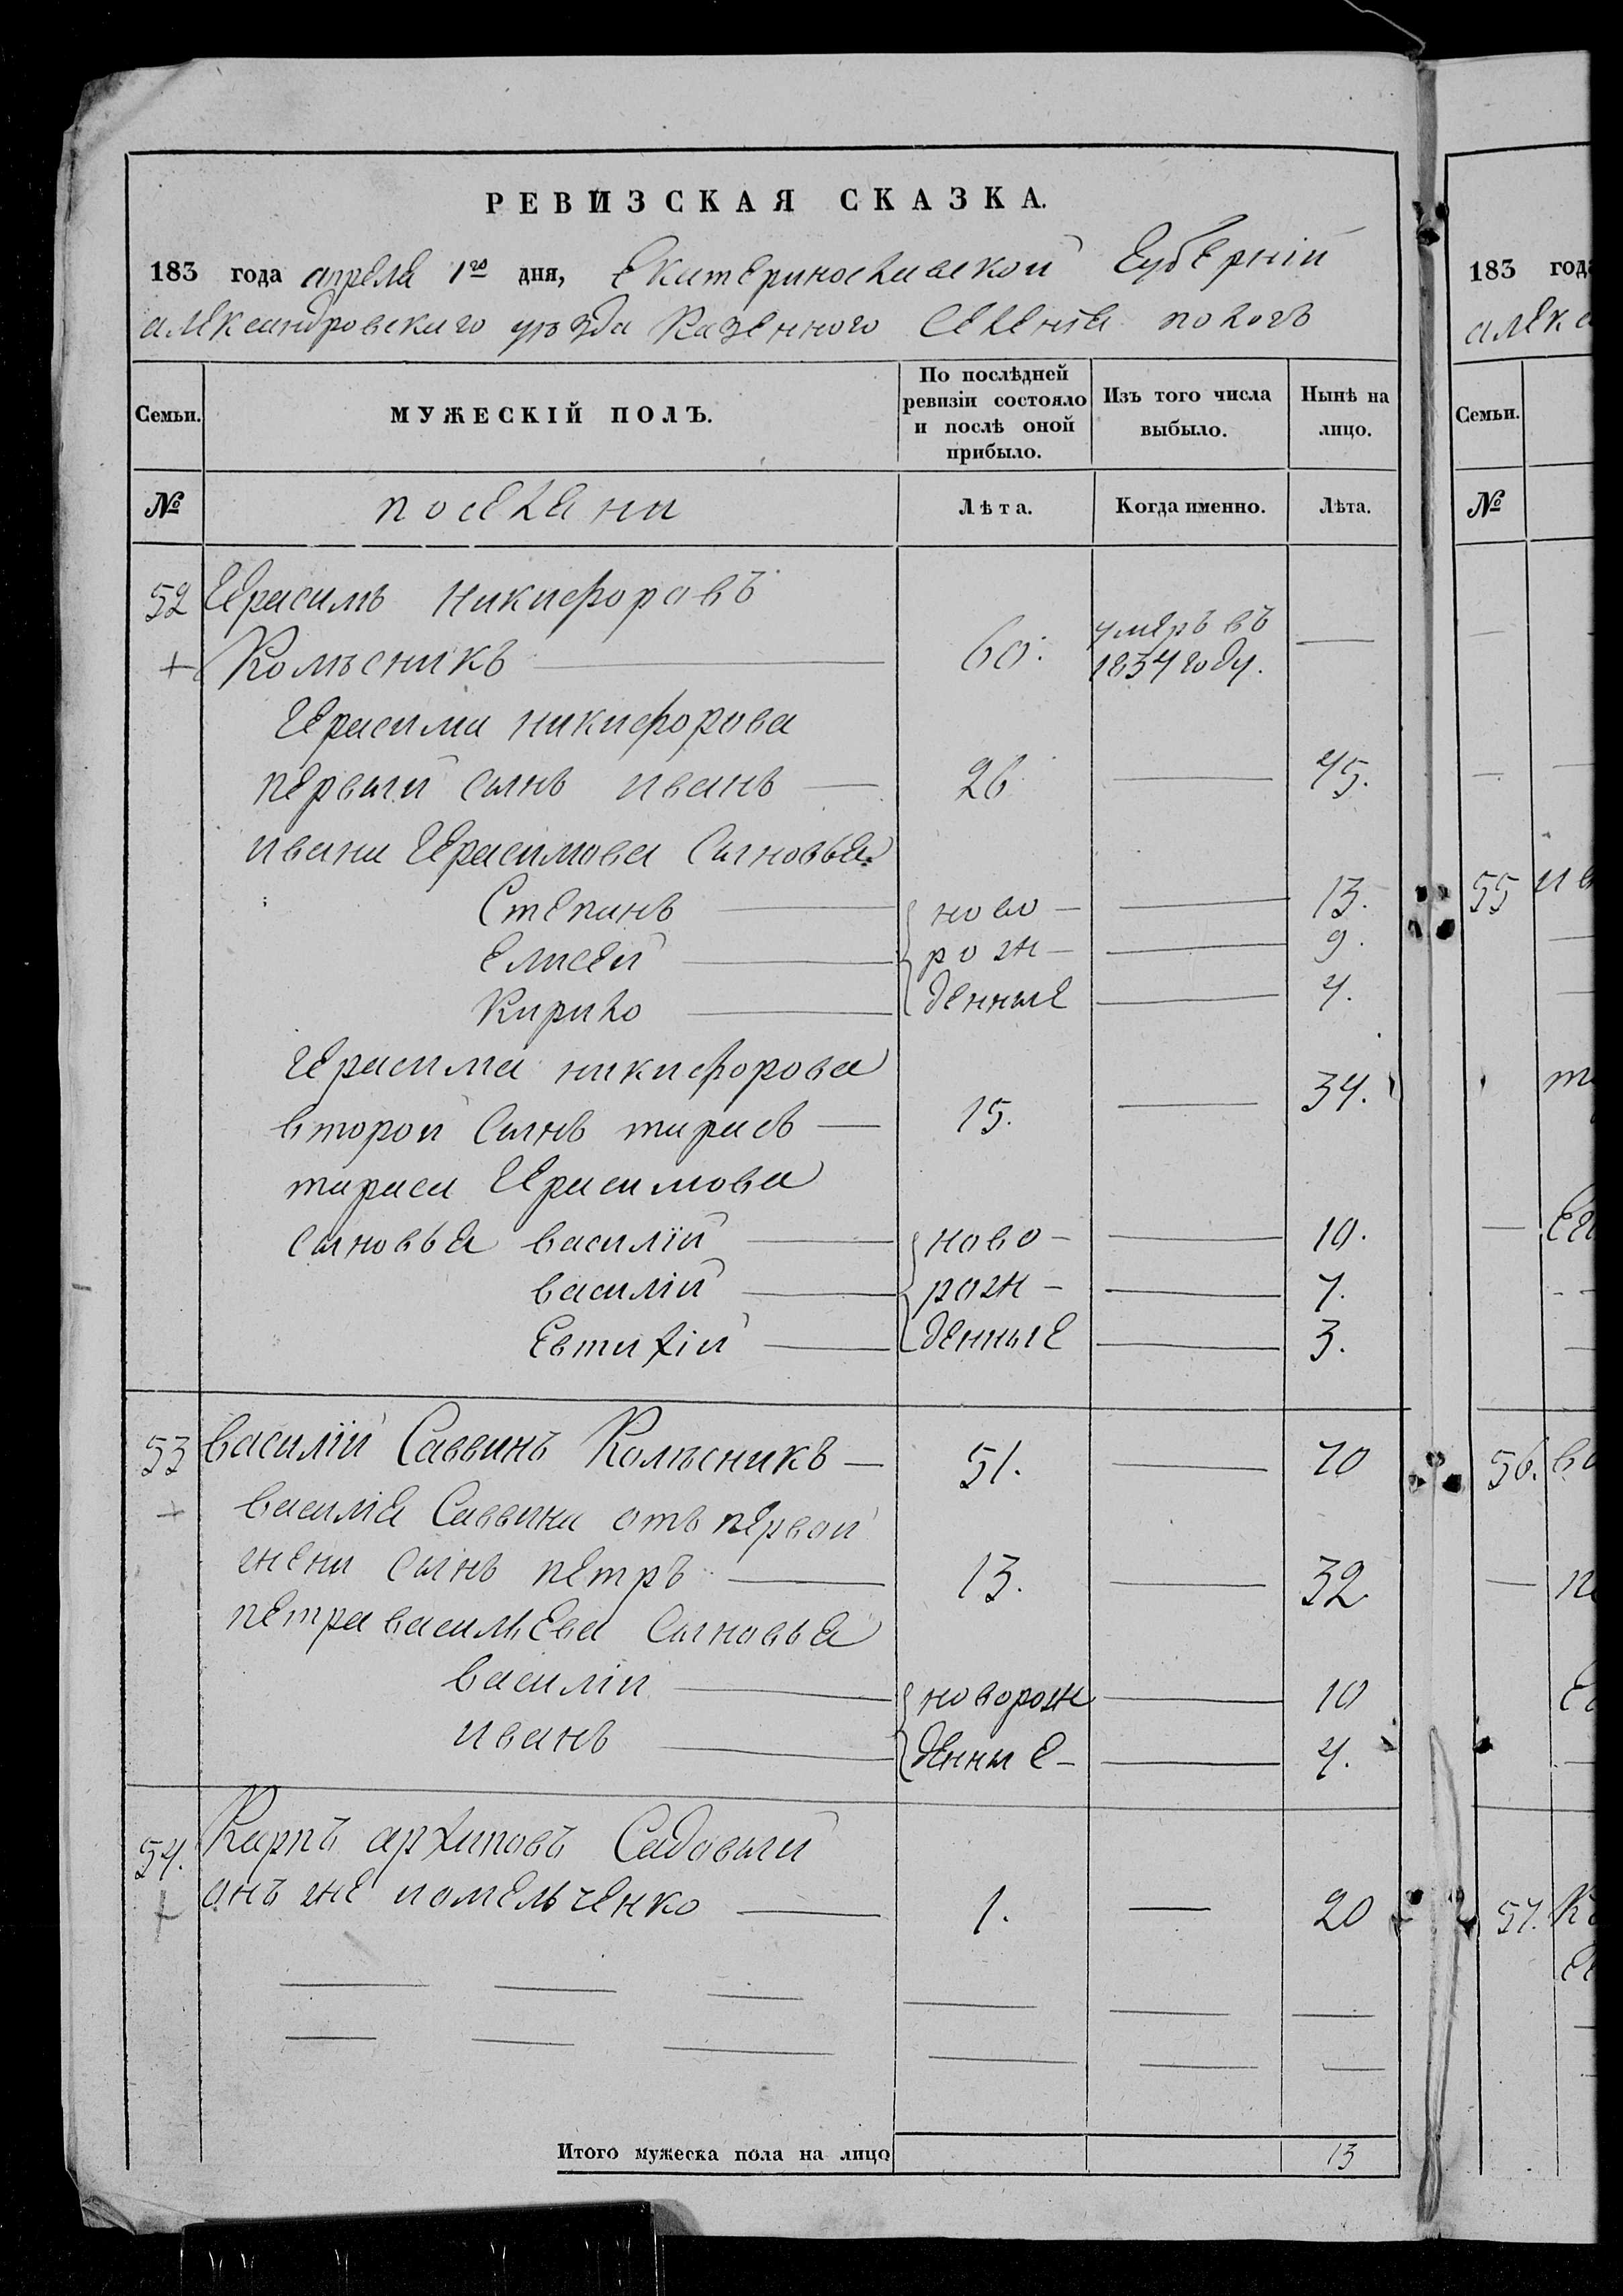 РЕВИЗСКАЯ СКАЗКА.
183 года апреля 1го дня, Екатеринославской Губерніи
александровскаго уѣзда Казенного Селенія пологъ
Семьи.
МУЖЕСКІЙ ПОЛЪ.
По послѣдней ревизіи состояло и послѣ оной прибыло.
Изъ того числа выбыло.
Нынѣ на лицо.
№
поселяни
Лѣта.
Когда именно.
Лѣта.
52 Герасимъ Никифоровъ
Колѣсникъ 60. умеръ въ 1834 году.
Герасима никифорова
первый сынъ иванъ 26 45.
ивана Герасимова Сыновья
Степанъ ново 13.
Елисей рож 9.
Кирило денные 4.
Герасима никифорова
второй Сынъ тарасъ 15. 34.
тараса Герасимова
сыновья василій ново 10.
василій рож 7.
Евтихій денные 3.
53 василій Саввинъ Колѣсникъ 51. 70
василія Саввина отъ первой
жены сынъ петръ 13. 32
петра васильева Сыновья
василій новорож 10
иванъ денные 4.
54. Карпъ архиповъ Садовый
онъ же 1. 20
Итого мужеска пола на лицо 13
183 года
алекса
Семьи.
№
55 ив
56. ва
57. Ка